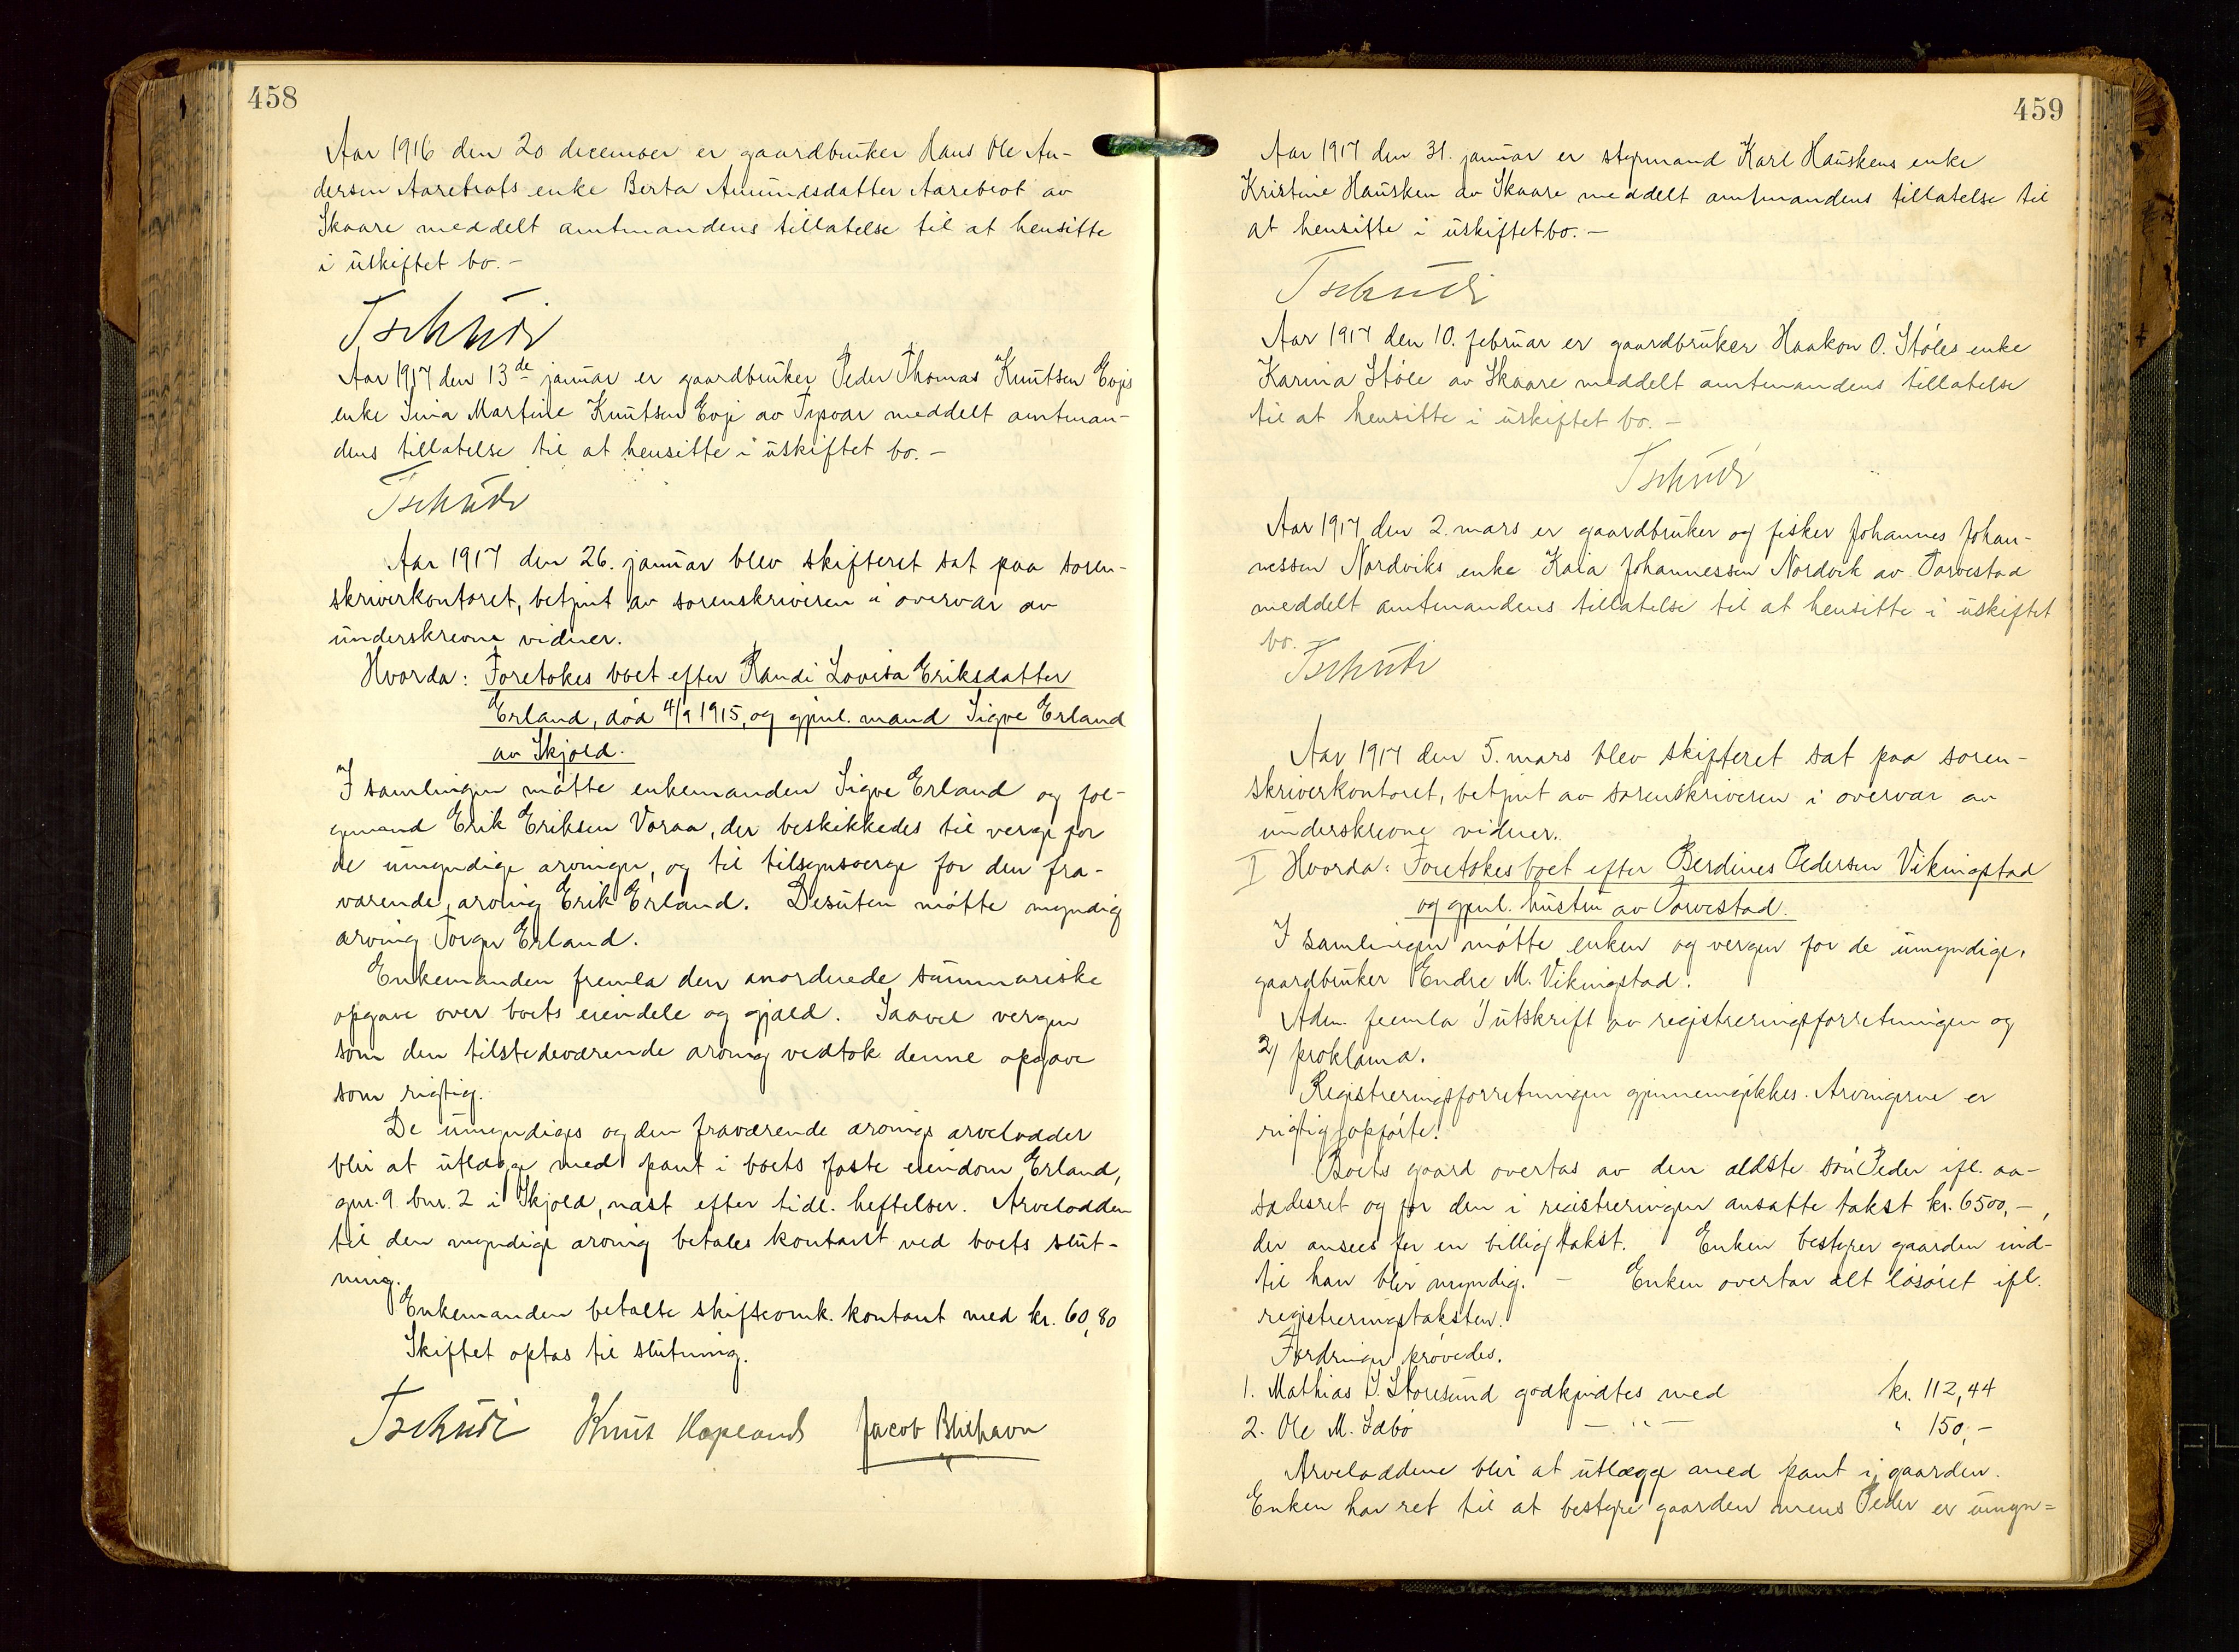 458
Aar 1916 den 20 december er gaardbruker Hans Ole An-
dersen Aarebrots enke Berta Amundsdatter Aarebrot av
Skaare meddelt amtmandens tillatelse til at hensitte
i uskiftet bo. -
Tschudi
Aar 1917 den 13de januar er gaardbruker Peder Thomas Knutsen Evjes
enke Sina Martine Knutsen Evje av Tysvær meddelt amtman-
dens tillatelse til at hensitte i uskiftet bo. -
Tschudi
Aar 1917 den 26. januar blev skifteret sat paa soren-
skriverkontoret, betjent av sorenskriveren i overvær av
underskrevne vidner.
Hvorda: Foretokes boet efter Randi Lovisa Eriksdatter
Erland, død 4/9 1915, og gjenl. mand Sigve Erland
av Skjold.
I samlingen møtte enkemanden Sigve Erland og fol-
gemand Erik Eriksen Voraa, der beskikkedes til verge for
de umyndige arvinger, og til tilsynsverge for den fra-
værende arving Erik Erland. Desuten møtte myndig
arving Torger Erland.
Enkemanden fremla den anordnede summariske
opgave over boets eiendele og gjæld. Saavel vergen
som den tilstedeværende arving vedtok denne opgave
som rigtig.
De umyndiges og den fraværende arvings arvelodder
blir at utlægge med pant i boets faste eiendom Erland,
gnr. 9 bnr. 2 i Skjold, næst efter tidl. heftelser. Arvelodden
til den myndige arving betales kontant ved boets slut-
ning.
Enkemanden betalte skifteomk. kontant med kr. 60,80
Skiftet optas til slutning.
Tschudi Knut Hapland Jacob Blikhavn
459
Aar 1917 den 31. januar er styrmand Karl Hauskens enke
Kristine Hausken av Skaare meddelt amtmandens tillatelse til
at hensitte i uskiftet bo. -
Tschudi
Aar 1917 den 10. februar er gaardbruker Haakon O. Støles enke
Karina Støle av Skaare meddelt amtmandens tillatelse
til at hensitte i uskiftet bo. -
Tschudi
Aar 1917 den 2. mars er gaardbruker og fisker Johannes Johan-
nessen Nordviks enke Kaia Johannessen Nordvik av Torvestad
meddelt amtmandens tillatelse til at hensitte i uskiftet
bo.
Tschudi
Aar 1917 den 5. mars blev skifteret sat paa soren-
skriverkontoret, betjent av sorenskriveren i overvær av
underskrevne vidner.
I Hvorda: Foretokes boet efter Berdines Pedersen Vikingstad
og gjenl. hustru av Torvestad.
I samlingen møtte enken og vergen for de umyndige,
gaardbruker Endre M. Vikingstad.
Adm. fremla 1) utskrift av registreringsforretningen og
2) proklama.
Registreringsforretningen gjennemgikkes. Arvingerne er
rigtig opførte.
Boets gaard overtas av den ældste søn Peder ifl. aa-
sædesret og for den i registreringen ansatte takst kr. 6500,-,
der ansees for en billig takst. Enken bestyrer gaarden ind-
til han blir myndig. - Enken overtar alt løsøret ifl.
registreringstaksten.
Fordringer prøvedes.
1. Mathias S. Storesund godkjendtes med kr. 112,44
2. Ole M. Sæbø - " - " 150,-
Arveloddene blir at utlægge med pant i gaarden.
Enken har ret til at bestyre gaarden mens Peder er umyn=